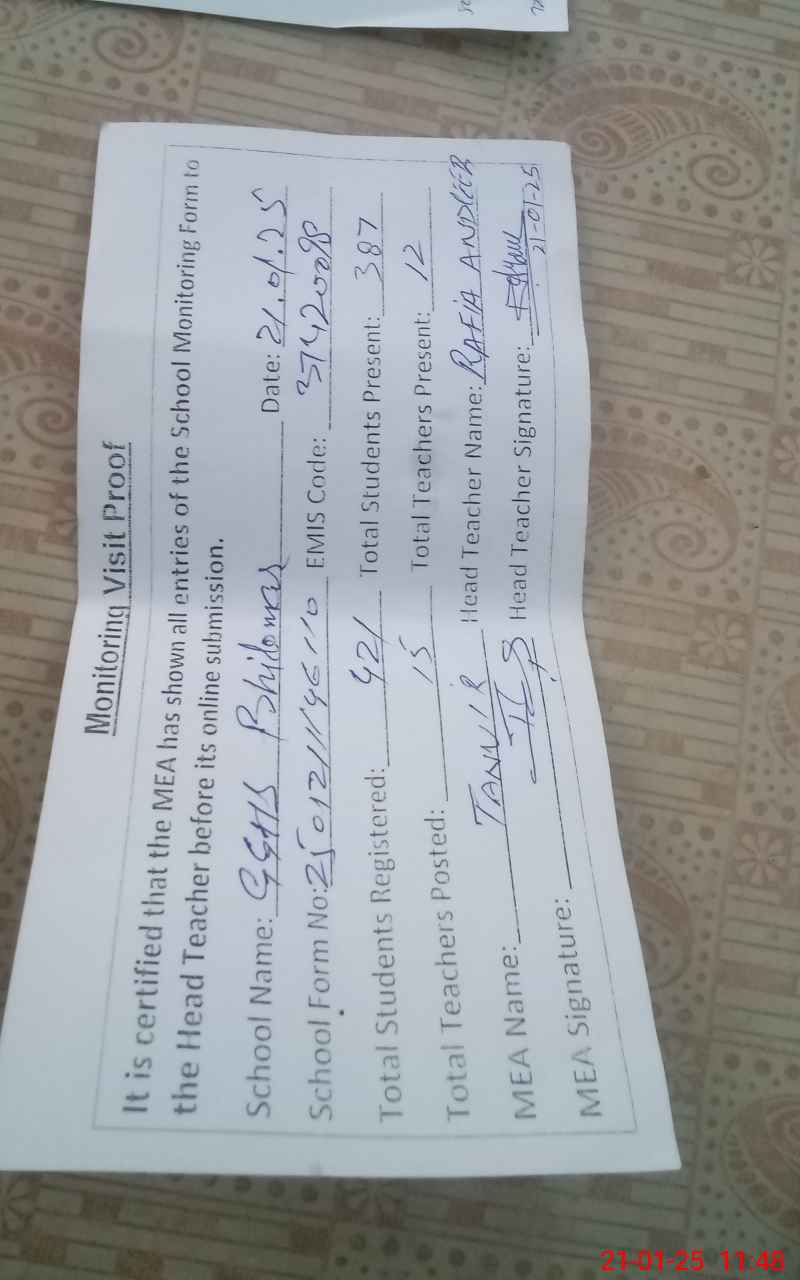 Monitoring Visit Proof
It is certified that the MEA has shown all entries of the School Monitoring Form to
the Head Teacher before its online submission.
School Name: GGHS Bhilomar Date: 21.01.25
School Form No: 2501211146110 EMIS Code: 37420098
Total Students Registered: 421 Total Students Present: 387
Total Teachers Posted: 15 Total Teachers Present: 12
MEA Name: TANVIR Head Teacher Name: RAFIA ANDLEEB
MEA Signature: Head Teacher Signature:
21-01-25
21-01-25 11:48